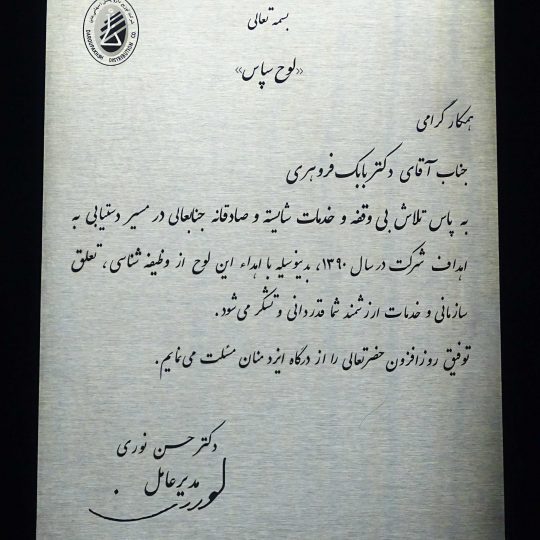 بسمه تعالی
«لوح سپاس»
همکار گرامی
جناب آقای دکتر بابک فروهری
به پاس تلاش بی وقفه و خدمات شایسته و صادقانه جنابعالی در مسیر دستیابی به
اهداف شرکت در سال ۱۳۹۰، بدینوسیله با اهداء این لوح از وظیفه شناسی، تعلق
سازمانی و خدمات ارزشمند شما قدردانی و تشکر می‌شود.
توفیق روزافزون حضرتعالی را از درگاه ایزد منان مسئلت می‌نمایم.
دکتر حسن نوری
مدیر عامل
DAROUPAKHSH DISTRIBUTION CO